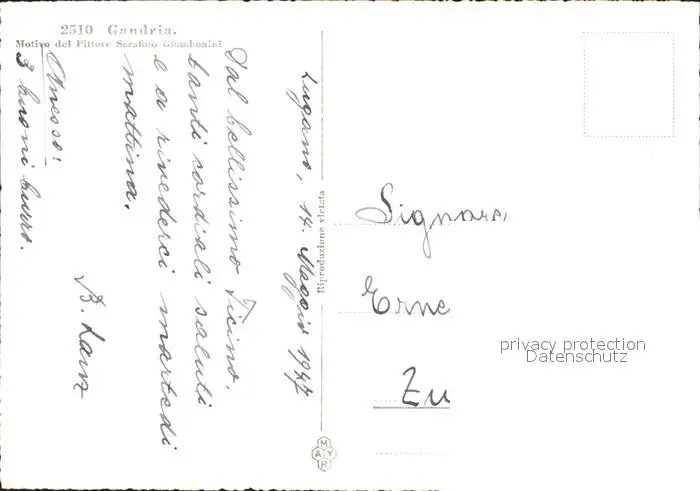 2510 Gandria.
Motivo del Pittore Serafino Giambonini
Lugano, 14. Maggio 1947
Dal bellissimo Ticino.
tanti cordiali saluti
e a rivederci martedi
mattina.
Annesso:
3 buoni burro.
B. Lanz
Riproduzione vietata
Signora
Erne
Zu
privacy protection
Datenschutz
MAYR